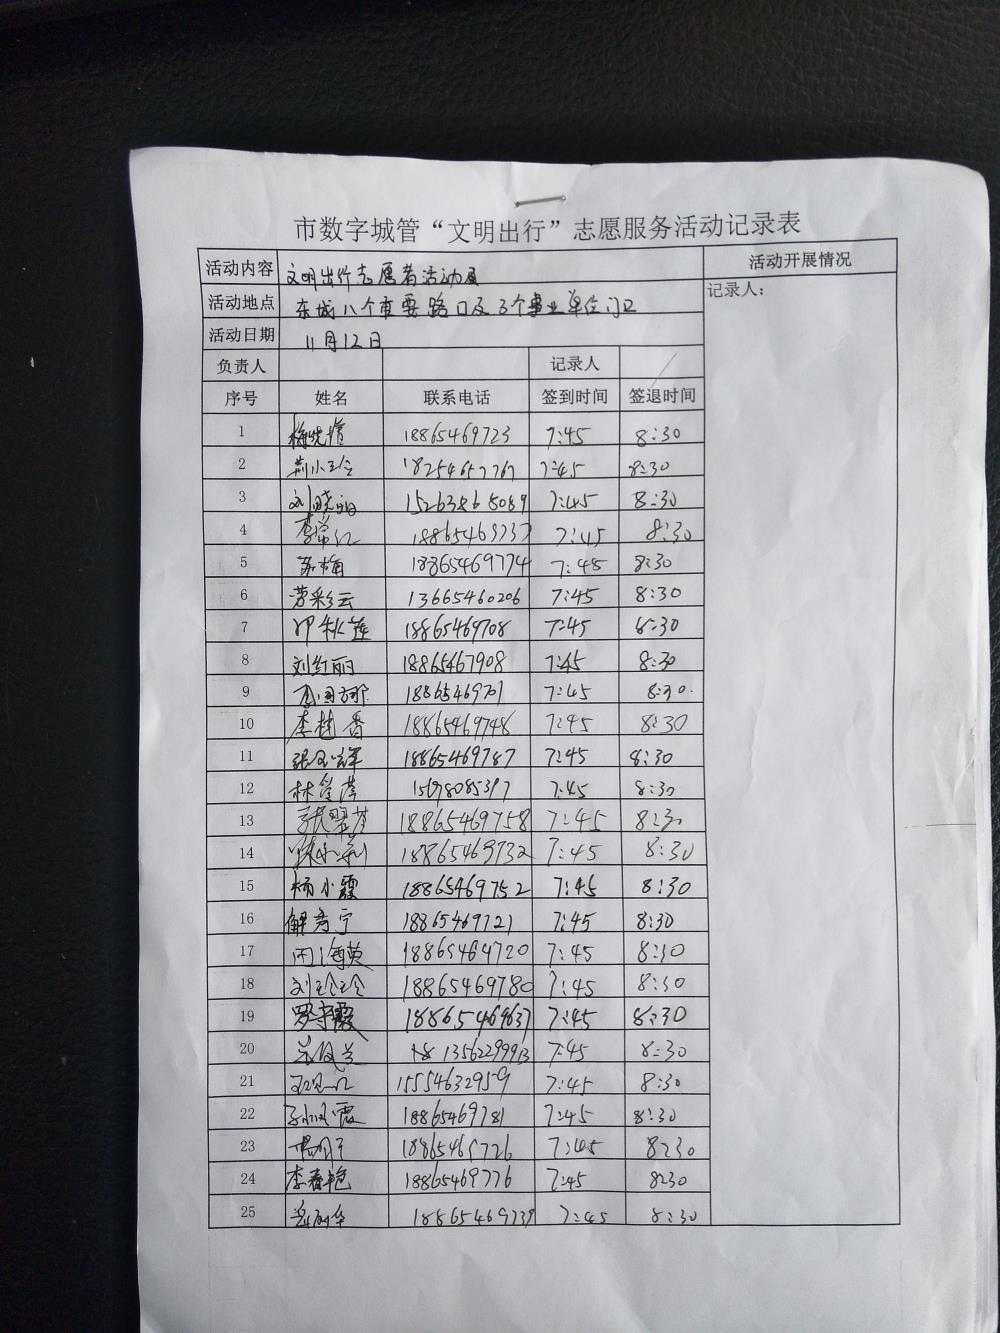 市数字城管“文明出行”志愿服务活动记录表
活动内容 文明出行志愿者活动 活动开展情况
活动地点 东城八个重要路口及3个事业单位门口 记录人：
活动日期 11月12日
负责人 记录人
序号 姓名 联系电话 签到时间 签退时间
1 18865469723 7:45 8:30
2 荆小玲 18254657767 7:45 8:30
3 刘晓丽 15263868089 7:45 8:30
4 李常红 18865469737 7:45 8:30
5 苏梅 18865469774 7:45 8:30
6 苏彩云 13665460206 7:45 8:30
7 秋莲 18865469708 7:45 8:30
8 刘红丽 18865467908 7:45 8:30
9 7:45 8:30
10 李桂香 18865469748 7:45 8:30
11 18865469787 7:45 8:30
12 林 7:45 8:30
13 张翠芹 18865469758 7:45 8:30
14 18865469732 7:45 8:30
15 杨小霞 18865469752 7:45 8:30
16 解秀宁 18865469721 7:45 8:30
17 周海英 18865464720 7:45 8:30
18 刘玲玲 18865469780 7:45 8:30
19 罗守霞 18865469637 7:45 8:30
20 13562299913 7:45 8:30
21 15554632959 7:45 8:30
22 孙凤霞 18865469781 7:45 8:30
23 18865469726 7:45 8:30
24 李春艳 18865469776 7:45 8:30
25 18865469739 7:45 8:30